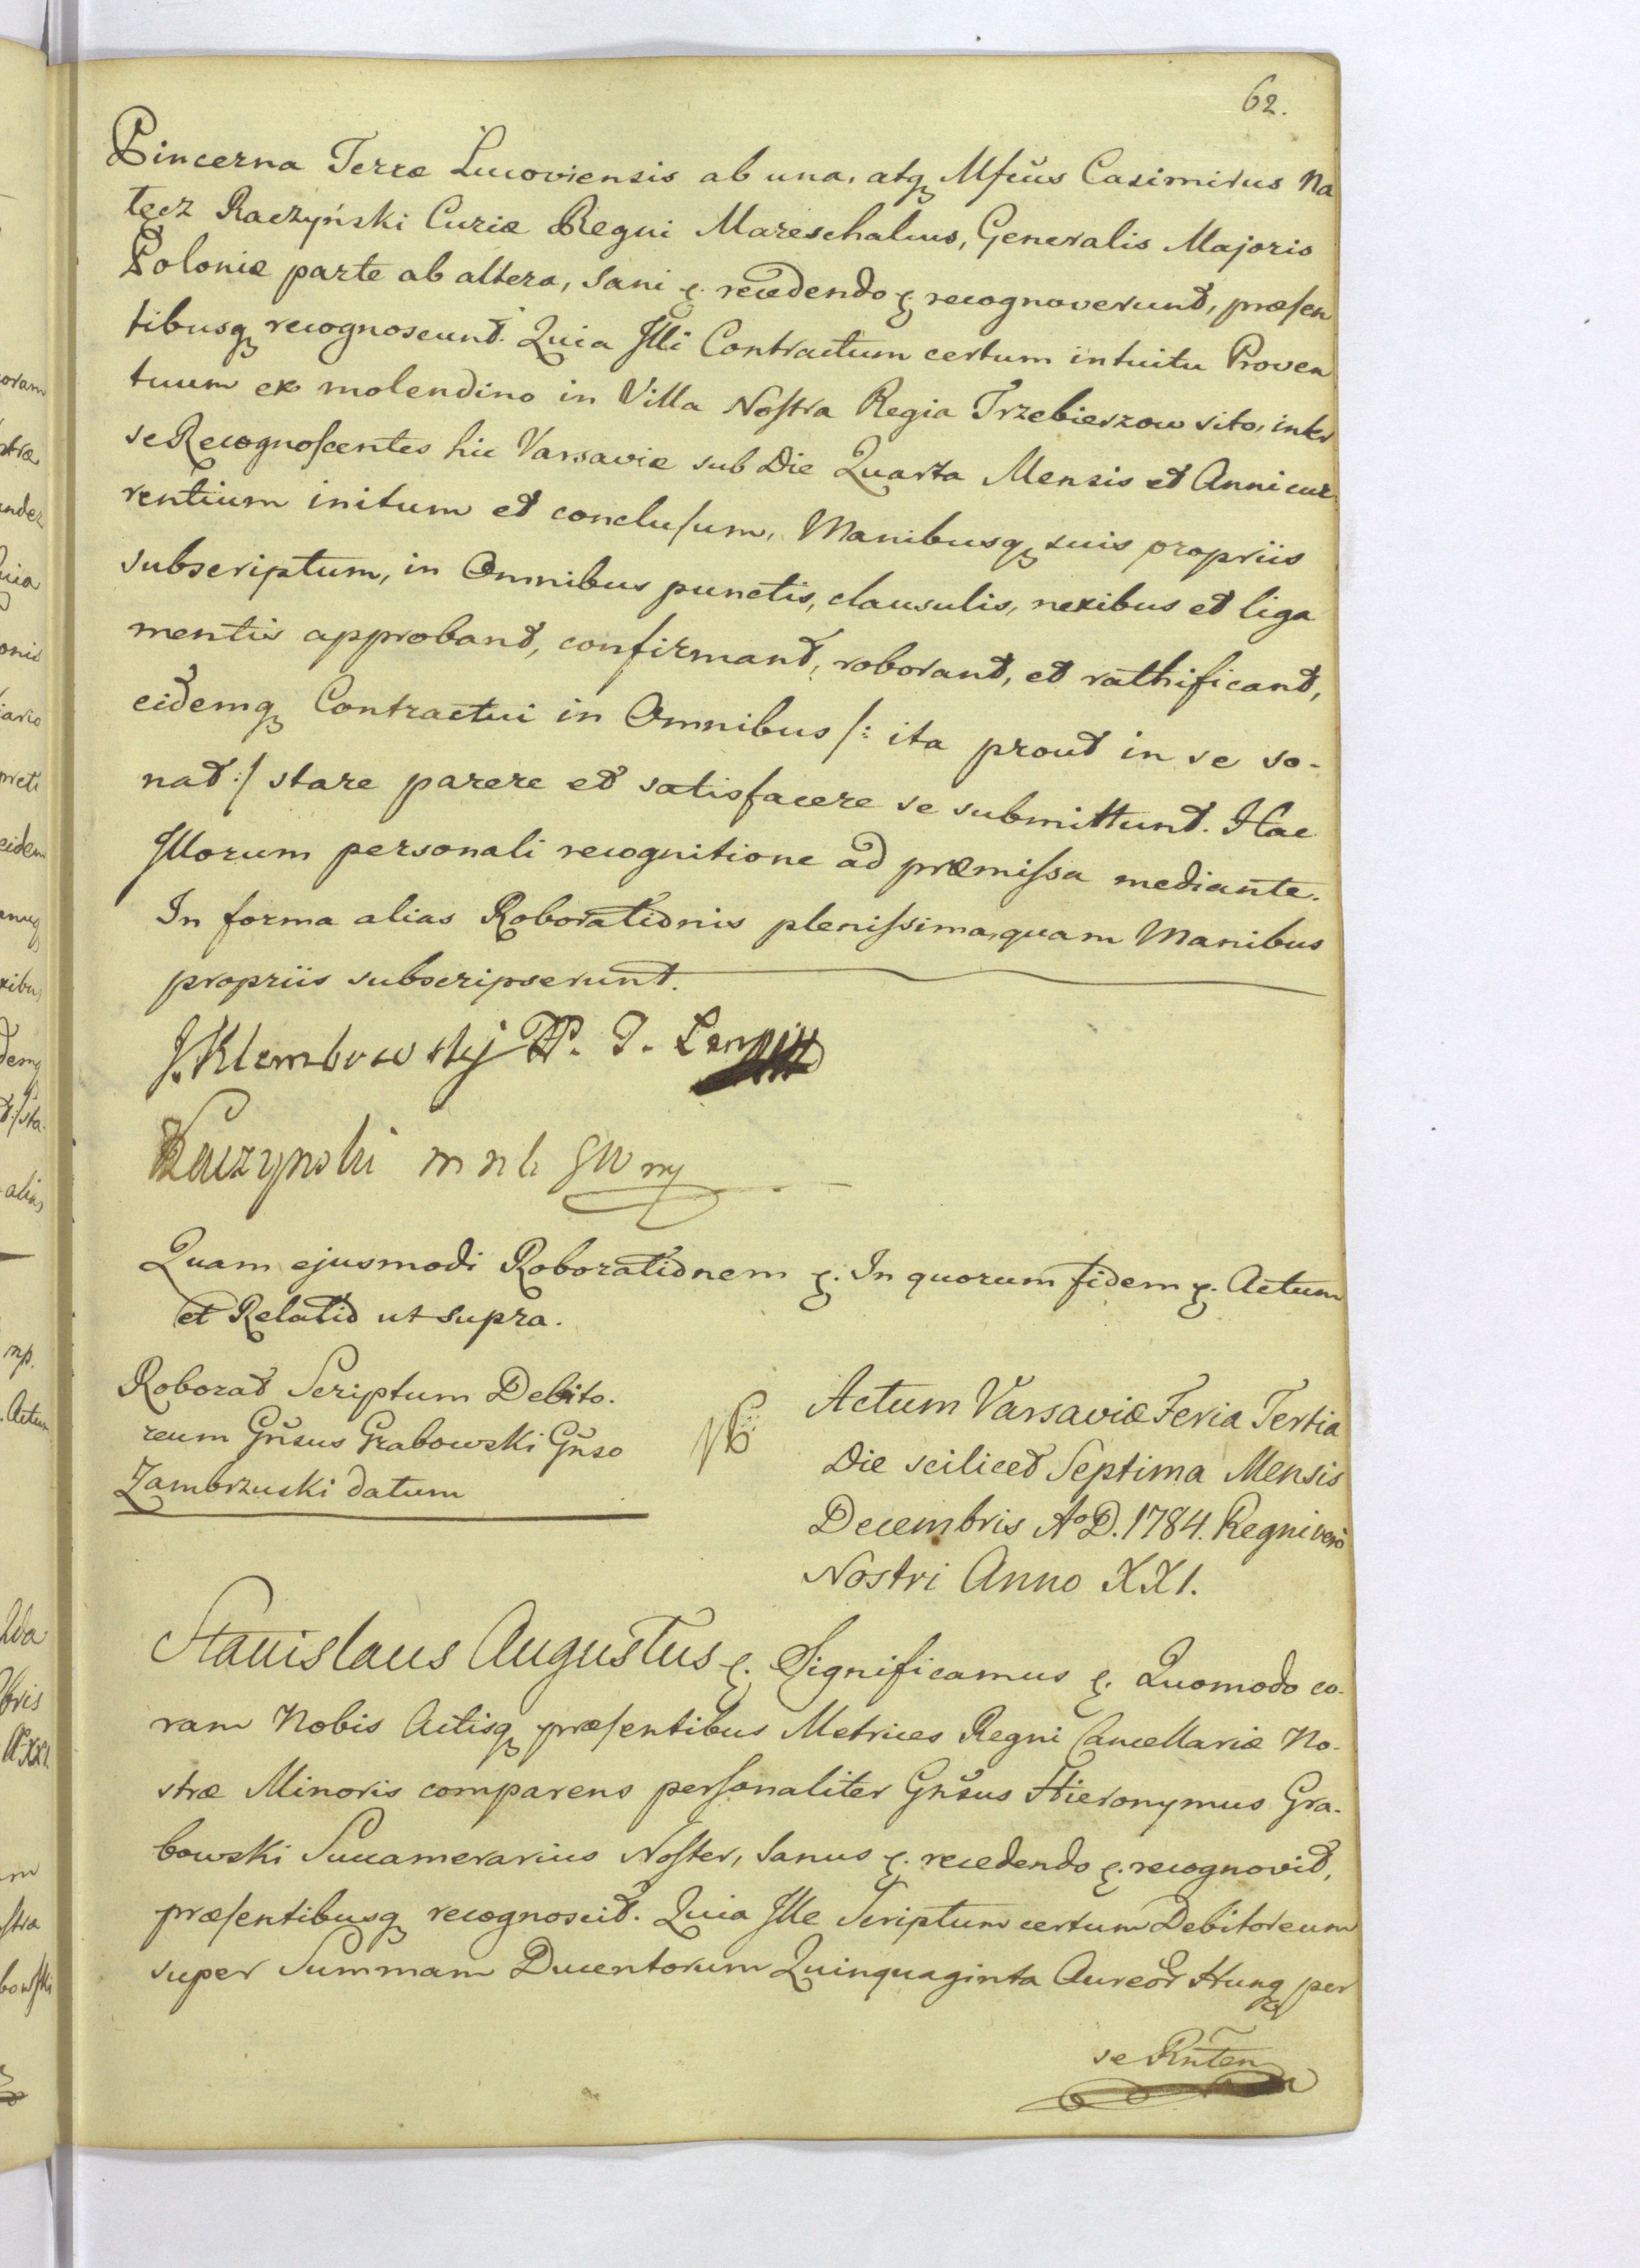 62.
Pincerna Terræ Lucoviensis ab una, atq Mfcus Casimirus Na
łęcz Raczyński Curiæ Regni Mareschalcus, Generalis Majoris
Poloniæ parte ab altera, sani &. recedendo &. recognoverunt, præsen
tibusq recognoscunt. Quia Illi Contractum certum intuitu Proven
tuum ex molendino in Villa Nostra Regia Trzebieszow sito, inter
se Recognoscentes hic Varsaviæ sub Die Quarta Mensis et Anni cur
rentium initum et conclusum, Manibusq suis propriis
subscriptum, in Omnibus punctis, clausulis, nexibus et liga
mentis approbant, confirmant, roborant, et rathificant,
eidemq Contractui in Omnibus /: ita prout in se so-
nat :/ stare parere et satisfacere se submittunt. Hac
Illorum personali recognitione ad præmissa mediante.
In forma alias Roborationis plenissima, quam Manibus
propriis subscripserunt.
J. Klembowskj P. T.
Raczynski
Quam ejusmodi Roborationem &. In quorum fidem &. Actum
et Relatio ut supra.
Roborat Scriptum Debito.
reum Gnsus Grabowski Gnso
Zambrzuski datum
Actum Varsaviæ Feria Tertia
Die scilicet Septima Mensis
Decembris Ao D. 1784. Regni vero
Nostri Anno XXI.
Stanislaus Augustus &. Significamus &. Quomodo co-
ram Nobis Actisq præsentibus Metrices Regni Cancellariæ No-
stræ Minoris comparens personaliter Gnsus Hieronymus Gra-
bowski Succamerarius Noster, sanus &. recedendo &. recognovit,
præsentibusq recognoscit. Quia Ille Scriptum certum Debitoreum
super Summam Ducentorum Quinquaginta Aureor Hung per
se Rnten